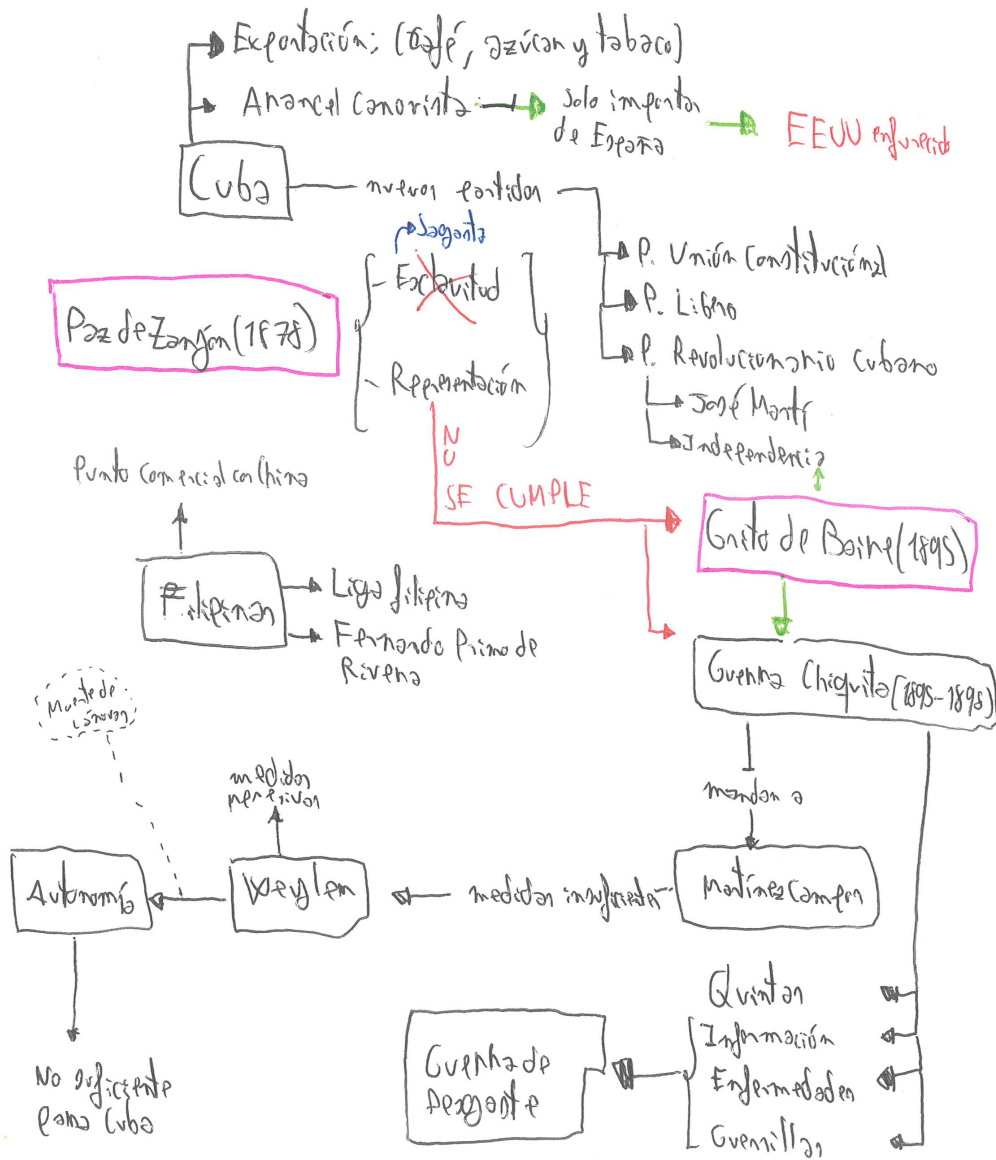 Exportación: (Café, azúcar y tabaco)
Arancel Canovista
Solo importar
de España
EEUU enfurecido
Cuba
nuevos partidos
P. Unión Constitucional
P. Libero
P. Revolucionario Cubano
José Martí
Independencia
Sagasta
Paz de Zanjón (1878)
- Esclavitud
- Representación
NO
SE CUMPLE
Punto comercial con China
Filipinas
Liga filipina
Fernando Primo de
Rivera
Grito de Baire (1895)
Guerra Chiquita (1895-1898)
mandan a
Martínez Campos
medidas insuficientes
Weyler
medidas
represivas
Muerte de
Cánovas
Autonomía
No suficiente
para Cuba
Quintas
Información
Enfermedades
Guerrillas
Guerra de
Desgaste